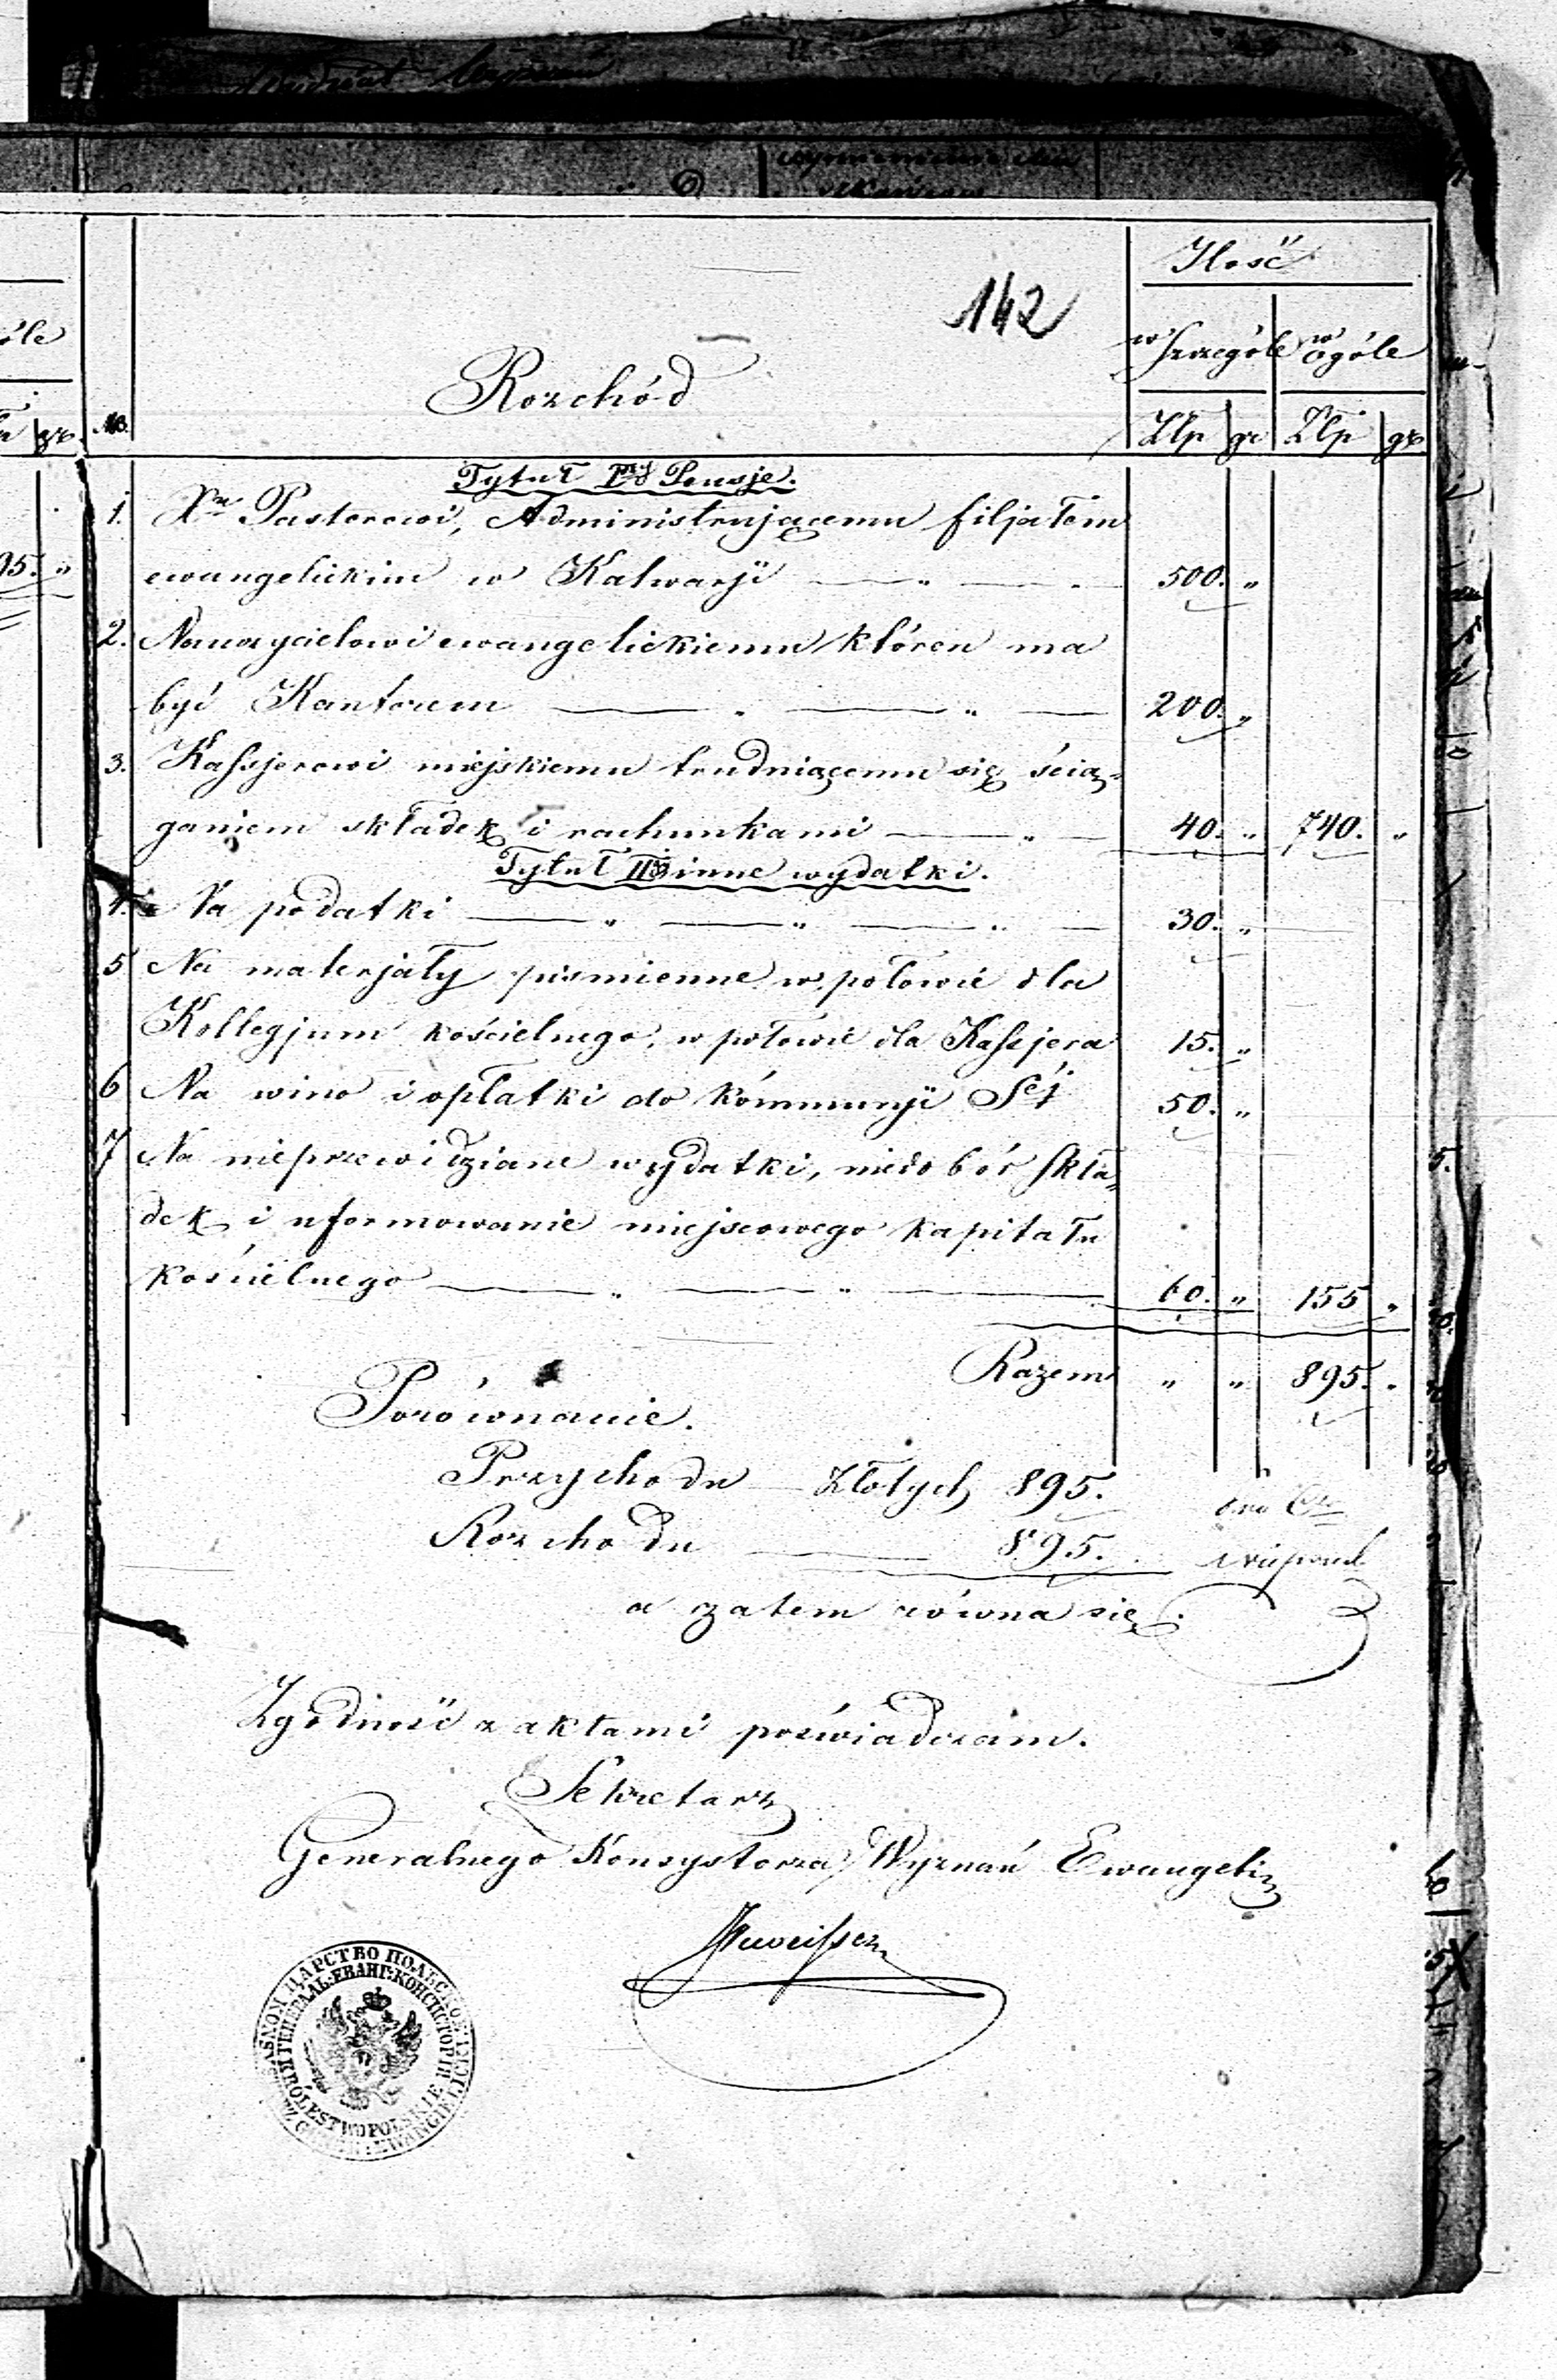 142
Ilość
w Szczególe w Ogóle
Rozchód
No. Złp gr Złp gr
Tytuł Iszy Pensje.
1. Xdu Pastorowi, Administrującemu filjałem
ewangelickim w Kalwarji 500. "
2. Nauczycielowi ewangelickiemu któren ma
być Kantorem 200. "
3. Kassjerowi miejskiemu trudniącemu się ścią„
ganiem składek i rachunkami 40. " 740. "
Tytuł IIgi inne wydatki.
4. Na podatki 30. "
5 Na materjały pismienne w połowie dla
Kollegjum kościelnego, w połowie dla Kassjera 15. "
6 Na wino i opłatki do kómmunji Sej 50. "
7 Na nieprzewidziane wydatki, niedobór skła„
dek i uformowanie miejscowego kapitału
kościelnego 60. " 155 "
Razem " " 895. "
Porównanie.
Przychodu Złotych 895.
Rozchodu 895.
a zatem równa się.
Zgodność z aktami poświadczam.
Sekretarz
Generalnego Konsystorza Wyznań Ewangelic
ЦАРСТВО ПОЛЬСКОЕ
ГЕНЕРАЛЬ: ЕВАНГ: КОНСИСТОРІИ
KRÓLESTWO POLSKIE